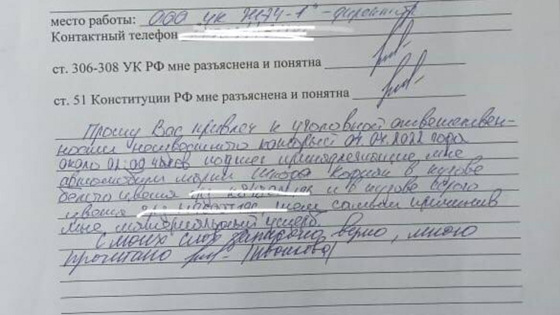 место работы: ООО УК ЖЭУ-1" - директор
Контактный телефон
ст. 306-308 УК РФ мне разъяснена и понятна
ст. 51 Конституции РФ мне разъяснена и понятна
Прошу Вас привлечь к уголовной ответствен-
ности неизвестного который 04.04.2022 года
около 02:00 часов принадлежащие мне
автомобили марки Шкода в кузове
белого цвета и в кузове
цвета тем самым причинив
мне материальный ущерб.
С моих слов записано верно, мною
прочитано